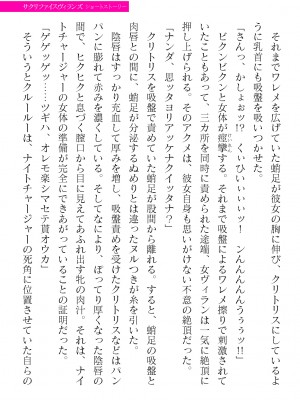 サクリファイスヴィランズ ショートストーリー
それまでワレメを広げていた蛸足が彼女の胸に伸び、クリトリスにしているよ
うに乳首にも吸盤を吸いつかせた。
「きんっ、かしょぉッ!? くぅひぃぃぃッ! ンんんんんぅぅッ!!」
ビクンビクンと女体が痙攣する。それまで吸盤によるワレメ擦りで刺激されて
いたこともあって、三カ所を同時に責められた途端、女ヴィランは一気に絶頂に
押し上げられる。そのアクメは、彼女自身も思いがけない不意の絶頂だった。
「ナンダ、思ッタヨリアッケナクイッタナ?」
クリトリスを吸盤で責めていた蛸足が股間から離れる。すると、蛸足の吸盤と
陰唇との間に、蛸足が分泌するぬめりとは違ったヌルつきが糸を引いた。
陰唇はすっかり充血して厚みを増し、吸盤責めを受けたクリトリスなどはパン
パンに膨れて赤みを濃くしている。そしてなにより、ぽってり厚くなった陰唇の
間で、ヒクヒクと息づく膣口から目に見えてあふれ出す牝の肉汁。それは、ナイ
トチャージャーの女体の準備が完全にできあがっていることの証明だった。
「ゲゲッゲッ……ツギハ、オレモ楽シマセテ貰オウカ」
そういうとクルールーは、ナイトチャージャーの死角に位置させていた自らの